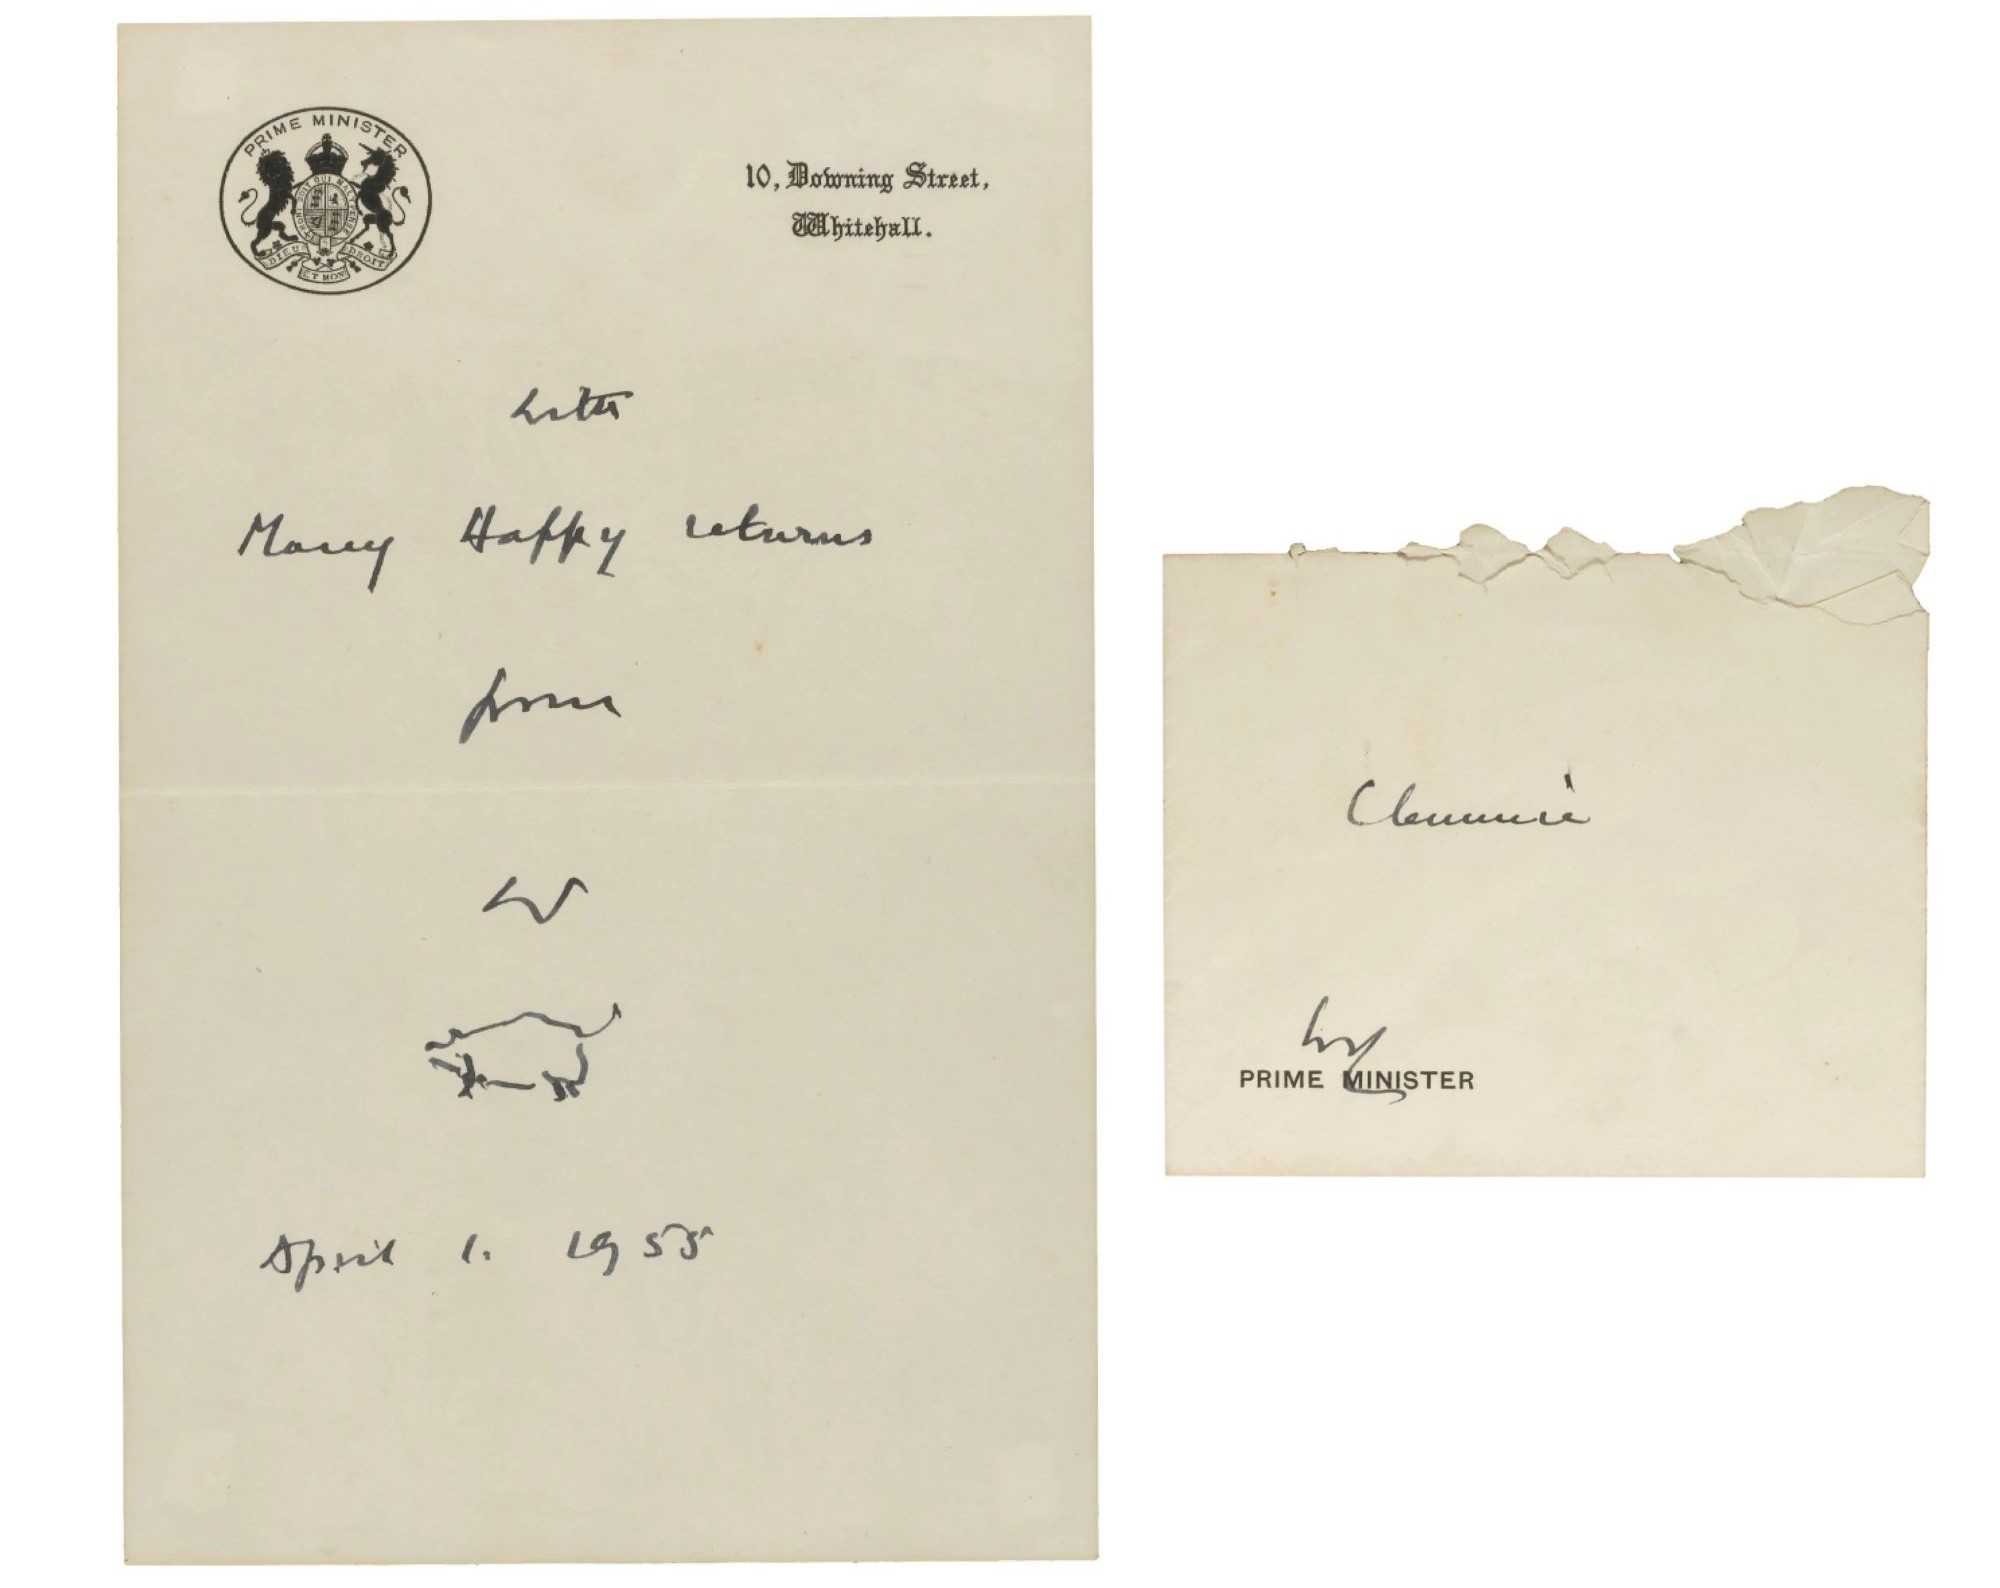 PRIME MINISTER
HONI SOIT QUI MAL Y PENSE
DIEU ET MON DROIT
10, Downing Street,
Whitehall.
with
Many Happy returns
from
W
April 1. 1955
Clemmie
PRIME MINISTER